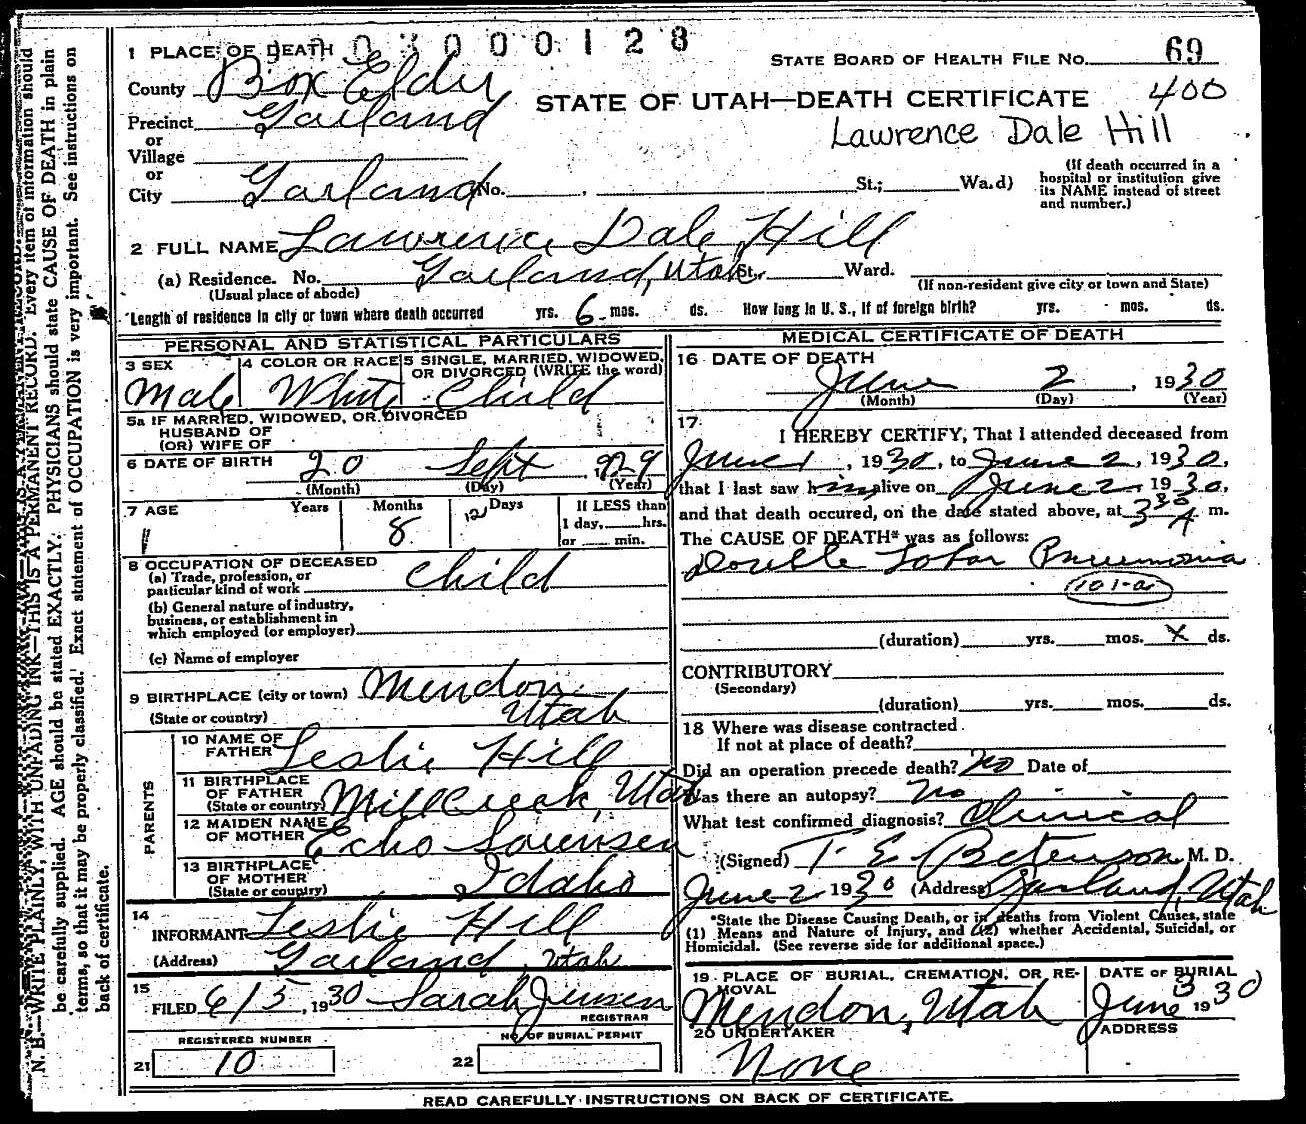 1 PLACE OF DEATH 0 3 0 0 0 1 2 8
STATE BOARD OF HEALTH FILE No. 69
County Box Elder
STATE OF UTAH—DEATH CERTIFICATE 400
Precinct Garland
Lawrence Dale Hill
or
Village
or
City Garland No. St.; Ward)
(If death occurred in a
hospital or institution give
its NAME instead of street
and number.)
2 FULL NAME Lawrence Dale Hill
(a) Residence. No. Garland, Utah St., Ward.
(Usual place of abode)
(If non-resident give city or town and State)
Length of residence in city or town where death occurred yrs. 6 mos. ds. How long in U. S., if of foreign birth? yrs. mos. ds.
PERSONAL AND STATISTICAL PARTICULARS
3 SEX
Male
4 COLOR OR RACE
White
5 SINGLE, MARRIED, WIDOWED,
OR DIVORCED (WRITE the word)
Child
5a IF MARRIED, WIDOWED, OR DIVORCED
HUSBAND OF
(OR) WIFE OF
6 DATE OF BIRTH 20 Sept 1929
(Month) (Day) (Year)
7 AGE Years Months Days If LESS than
8 12 1 day, hrs.
or min.
8 OCCUPATION OF DECEASED
(a) Trade, profession, or
particular kind of work Child
(b) General nature of industry,
business, or establishment in
which employed (or employer)
(c) Name of employer
9 BIRTHPLACE (city or town) Mendon
(State or country) Utah
PARENTS
10 NAME OF
FATHER Leslie Hill
11 BIRTHPLACE
OF FATHER
(State or country) Mill Creek, Utah
12 MAIDEN NAME
OF MOTHER Echo Sorensen
13 BIRTHPLACE
OF MOTHER
(State or country) Idaho
14
INFORMANT Leslie Hill
(Address) Garland, Utah
15
FILED 6/5, 1930 Sarah Jensen
REGISTRAR
REGISTERED NUMBER
21 10
NO. OF BURIAL PERMIT
22
MEDICAL CERTIFICATE OF DEATH
16 DATE OF DEATH
June 2, 1930
(Month) (Day) (Year)
17
I HEREBY CERTIFY, That I attended deceased from
June 1, 1930, to June 2, 1930,
that I last saw him alive on June 2, 1930,
and that death occured, on the date stated above, at 3 30 A m.
The CAUSE OF DEATH* was as follows:
Double Lobar Pneumonia
101-a
(duration) yrs. mos. X ds.
CONTRIBUTORY
(Secondary)
(duration) yrs. mos. ds.
18 Where was disease contracted
If not at place of death?
Did an operation precede death? No Date of
Was there an autopsy? No
What test confirmed diagnosis? Clinical
(Signed) T. E. Betenson M. D.
June 2 1930 (Address) Garland, Utah
*State the Disease Causing Death, or in deaths from Violent Causes, state
(1) Means and Nature of Injury, and (2) whether Accidental, Suicidal, or
Homicidal. (See reverse side for additional space.)
19 PLACE OF BURIAL, CREMATION, OR RE-
MOVAL
Mendon, Utah
DATE OF BURIAL
June 3 1930
20 UNDERTAKER
None
ADDRESS
READ CAREFULLY INSTRUCTIONS ON BACK OF CERTIFICATE.
N. B.—WRITE PLAINLY, WITH UNFADING INK—THIS IS A PERMANENT RECORD. Every item of information should
be carefully supplied. AGE should be stated EXACTLY. PHYSICIANS should state CAUSE OF DEATH in plain
terms, so that it may be properly classified. Exact statement of OCCUPATION is very important. See instructions on
back of certificate.